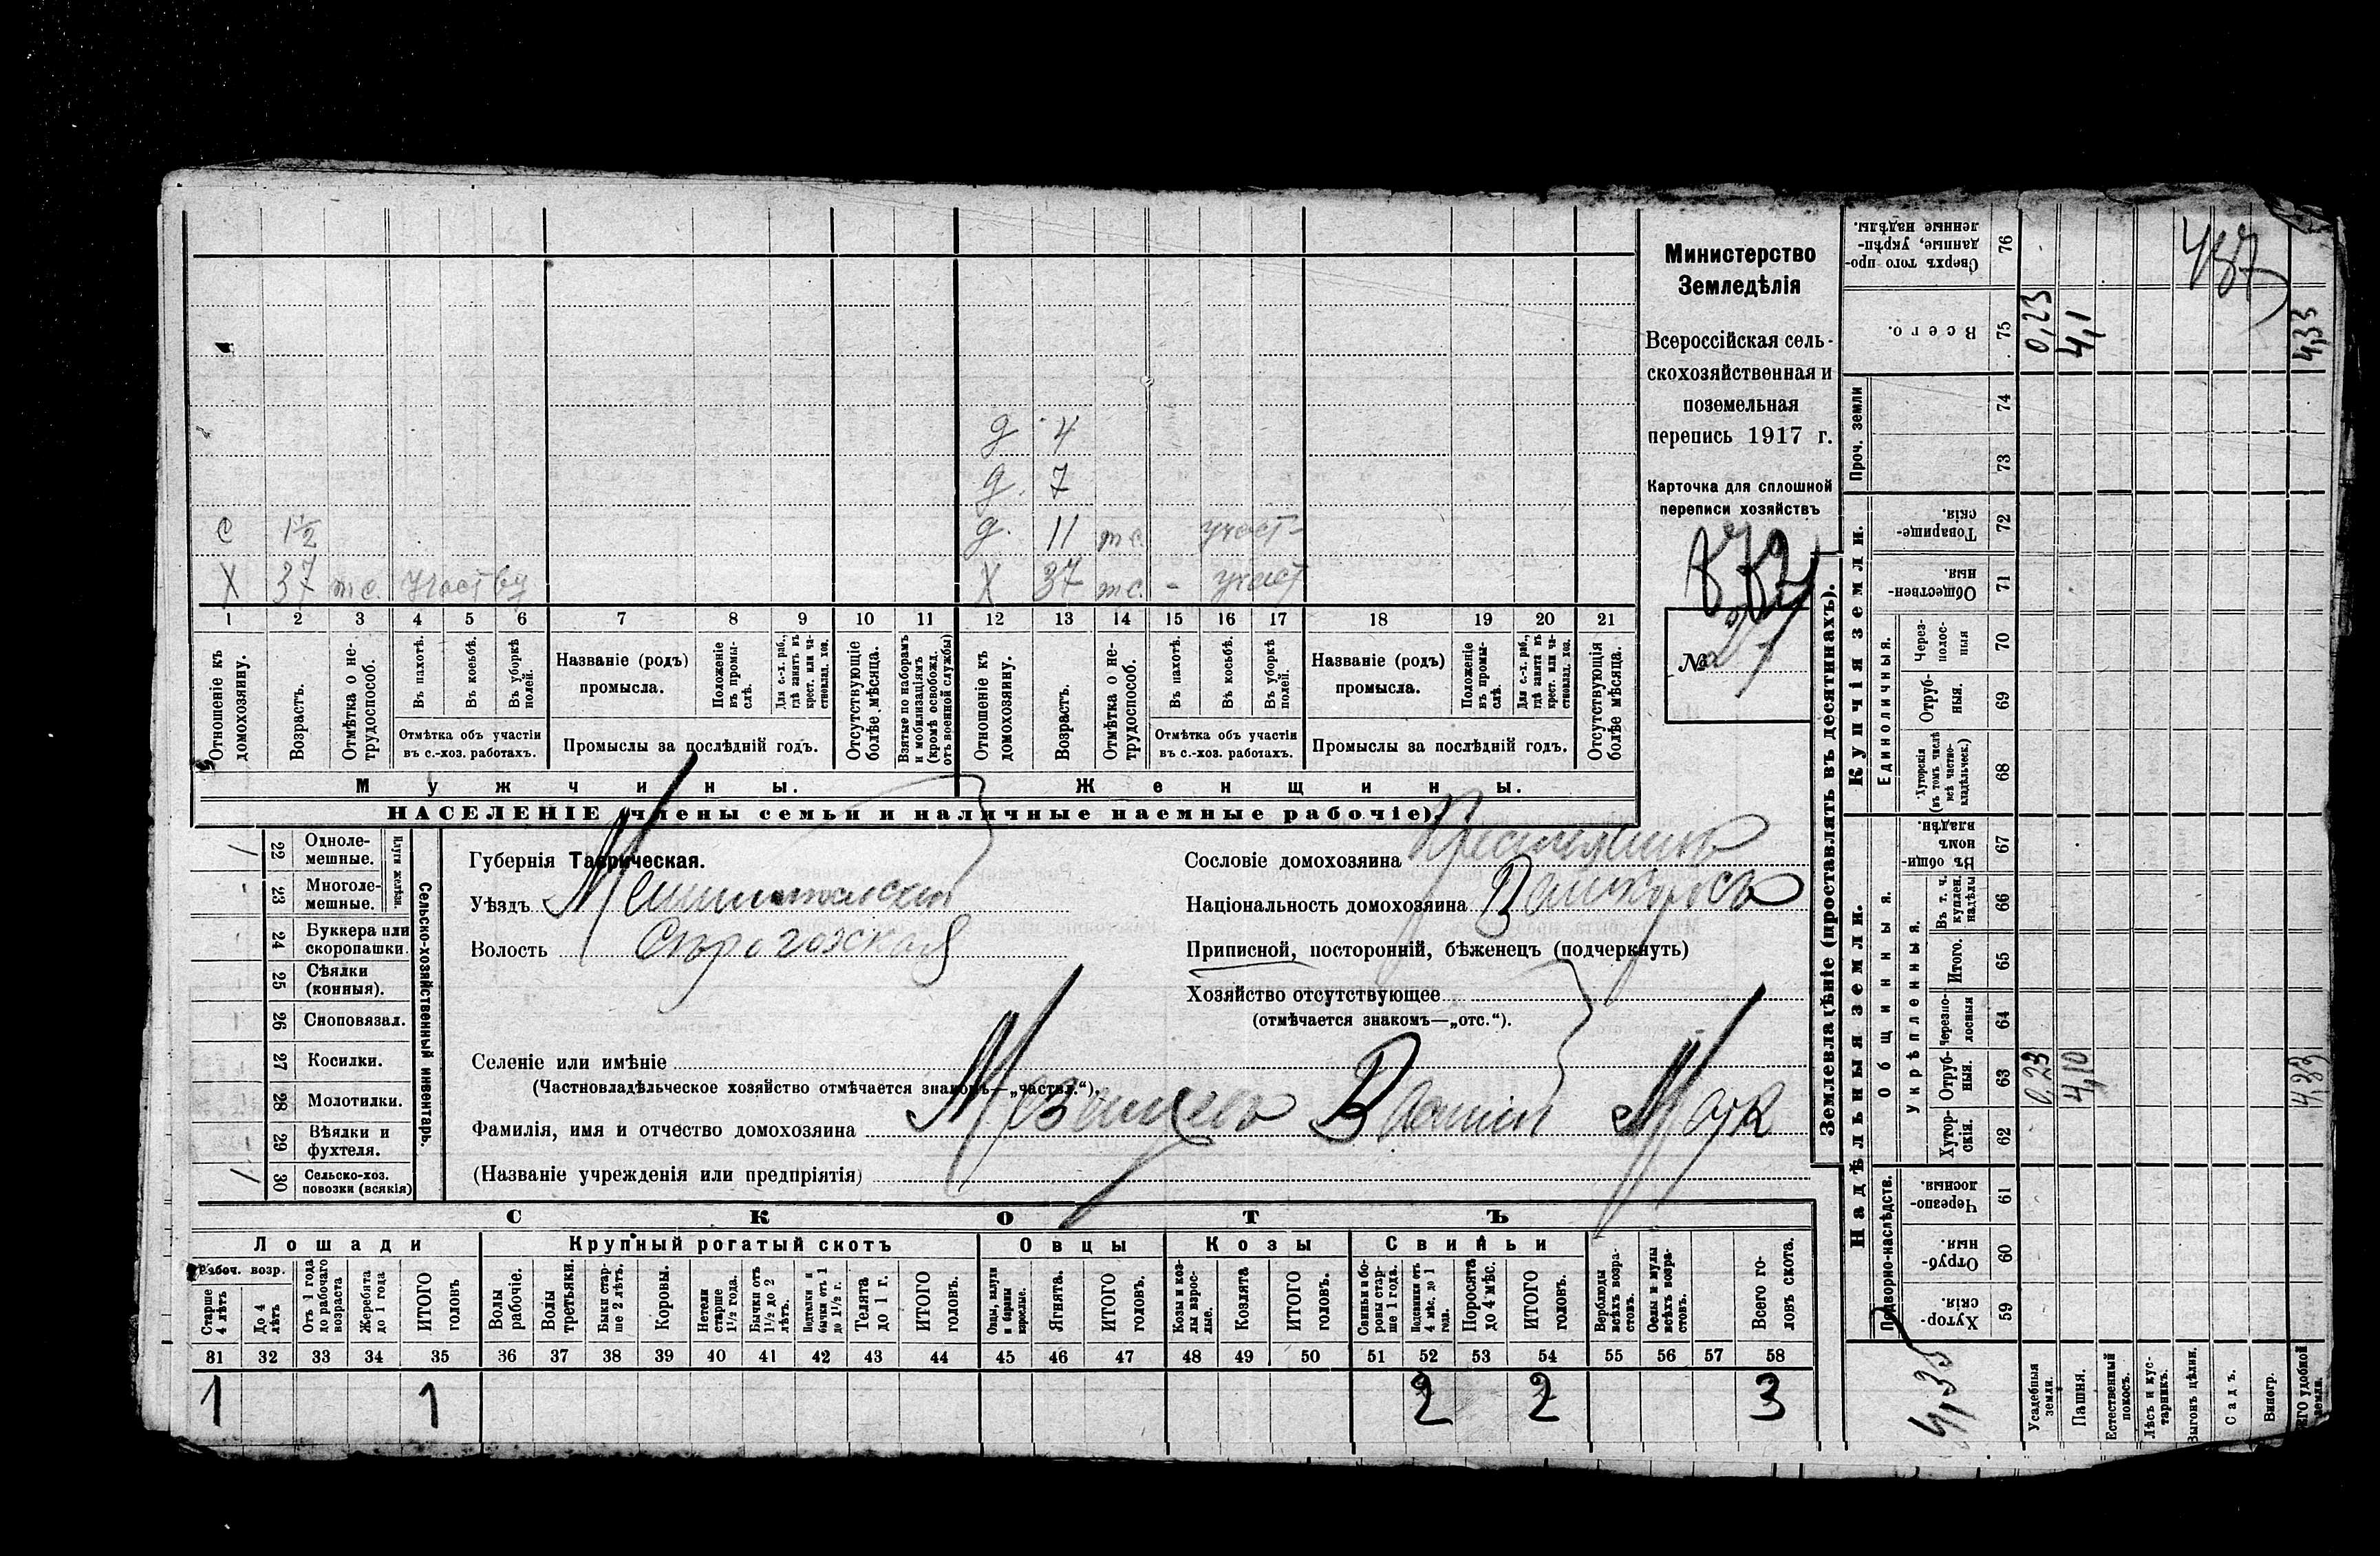 д 4
д. 7
с 1½ д. 11 т с. участ-
Х 37 т с. участву Х 37 т с. - участ
1 2 3 4 5 6 7 8 9 10 11 12 13 14 15 16 17 18 19 20 21
Отношеніе къ домохозяину.
Возрастъ.
Отмѣтка о не-трудоспособ.
Въ пахотѣ.
Въ косьбѣ.
Въ уборкѣ полей.
Отмѣтка объ участіи
въ с.-хоз. работахъ.
Названіе (родъ)
промысла.
Положеніе въ промы-слѣ.
Для с.-х. раб., гдѣ занятъ въ крест. или ча-стновлад. хоз.
Промыслы за послѣдній годъ.
Отсутствующіе болѣе мѣсяца.
Взятые по наборамъ и мобилизаціямъ (кромѣ освобожд. отъ военной службы)
Отношеніе къ домохозяину.
Возрастъ.
Отмѣтка о не-трудоспособ.
Въ пахотѣ.
Въ косьбѣ.
Въ уборкѣ полей.
Отмѣтка объ участіи
въ с.-хоз. работахъ.
Названіе (родъ)
промысла.
Положеніе въ промы-слѣ.
Для с.-х. раб., гдѣ занята въ крест. или ча-стновлад. хоз.
Промыслы за послѣдній годъ.
Отсутствующія болѣе мѣсяца.
Мужчины. Женщины.
НАСЕЛЕНІЕ (члены семьи и наличные наемные рабочіе).
Министерство
Земледѣлія
Всероссійская сель-
скохозяйственная и
поземельная
перепись 1917 г.
Карточка для сплошной
переписи хозяйствъ
872
№ 27
22 Одноле-мешные.
23 Многоле-мешные.
Плуги желѣзн.
24 Буккера или скоропашки.
25 Сѣялки (конныя).
26 Сноповязал.
27 Косилки.
28 Молотилки.
29 Вѣялки и фухтеля.
30 Сельско-хоз. повозки (всякія)
Сельско-хозяйственный инвентарь.
Губернія Таврическая.
Уѣздъ Мелитопольскій
Волость Строгоновская
Селеніе или имѣніе
(Частновладѣльческое хозяйство отмѣчается знакомъ—„частвл.“).
Фамилія, имя и отчество домохозяина
(Названіе учрежденія или предпріятія)
Сословіе домохозяина Крестьянинъ
Національность домохозяина Великороссъ
Приписной, посторонній, бѣженецъ (подчеркнуть)
Хозяйство отсутствующее
(отмѣчается знакомъ—„отс.“).
СКОТЪ
Лошади Крупный рогатый скотъ Овцы Козы Свиньи
Рабоч. возр.
Старше 4 лѣтъ
До 4 лѣтъ
Отъ 1 года до рабочаго возраста
Жеребята до 1 года
ИТОГО головъ
Волы рабочіе.
Волы третьяки.
Быки стар-ше 2 лѣтъ.
Коровы.
Нетели старше 1½ года.
Бычки отъ 1½ до 2 лѣтъ.
Подтелки и бычки отъ 1 до 1½ г.
Телята до 1 г.
ИТОГО головъ.
Овцы, валухи и бараны взрослые.
Ягнята.
ИТОГО головъ.
Козы и коз-лы взрос-лые.
Козлята
ИТОГО головъ.
Свиньи и бо-ровы стар-ше 1 года.
Подсвинки отъ 4 мѣс. до 1 года.
Поросята до 4 мѣс.
ИТОГО головъ.
Верблюды всѣхъ возра-стовъ.
Ослы и мулы всѣхъ возра-стовъ.
Всего го-ловъ скота.
31 32 33 34 35 36 37 38 39 40 41 42 43 44 45 46 47 48 49 50 51 52 53 54 55 56 57 58
1 1 2 2 3
Землевладѣніе (проставлять въ десятинахъ).
Надѣльныя земли. Купчія земли. Проч. земли
Подворно-наслѣдств.
Общинныя.
Укрѣпленныя.
Единоличныя.
Хутор-скія. 59
Отруб-ныя. 60
Черезпо-лосныя. 61
Хутор-скія. 62
Отруб-ныя. 63
Черезпо-лосныя 64
Итого. 65
Въ т. ч. куплен. надѣлы 66
Въ общин-номъ владѣн. 67
Хуторскія (въ томъ числѣ всѣ частно-владѣльческ.) 68
Отруб-ныя. 69
Через-полос-ныя 70
Обществен-ныя 71
Товарище-скія. 72
73
74
Всего. 75
Сверхъ того про-данные, укрѣп-ленные надѣлы. 76
Усадебныя земли. 0,23 0,23
Пашня. 4,10 4,1
Естественный покосъ.
Лѣсъ и кус-тарникъ.
Выгонъ цѣлин.
Садъ.
Виногр.
ЕГО удобной земли. 4,33 4,33
4,33